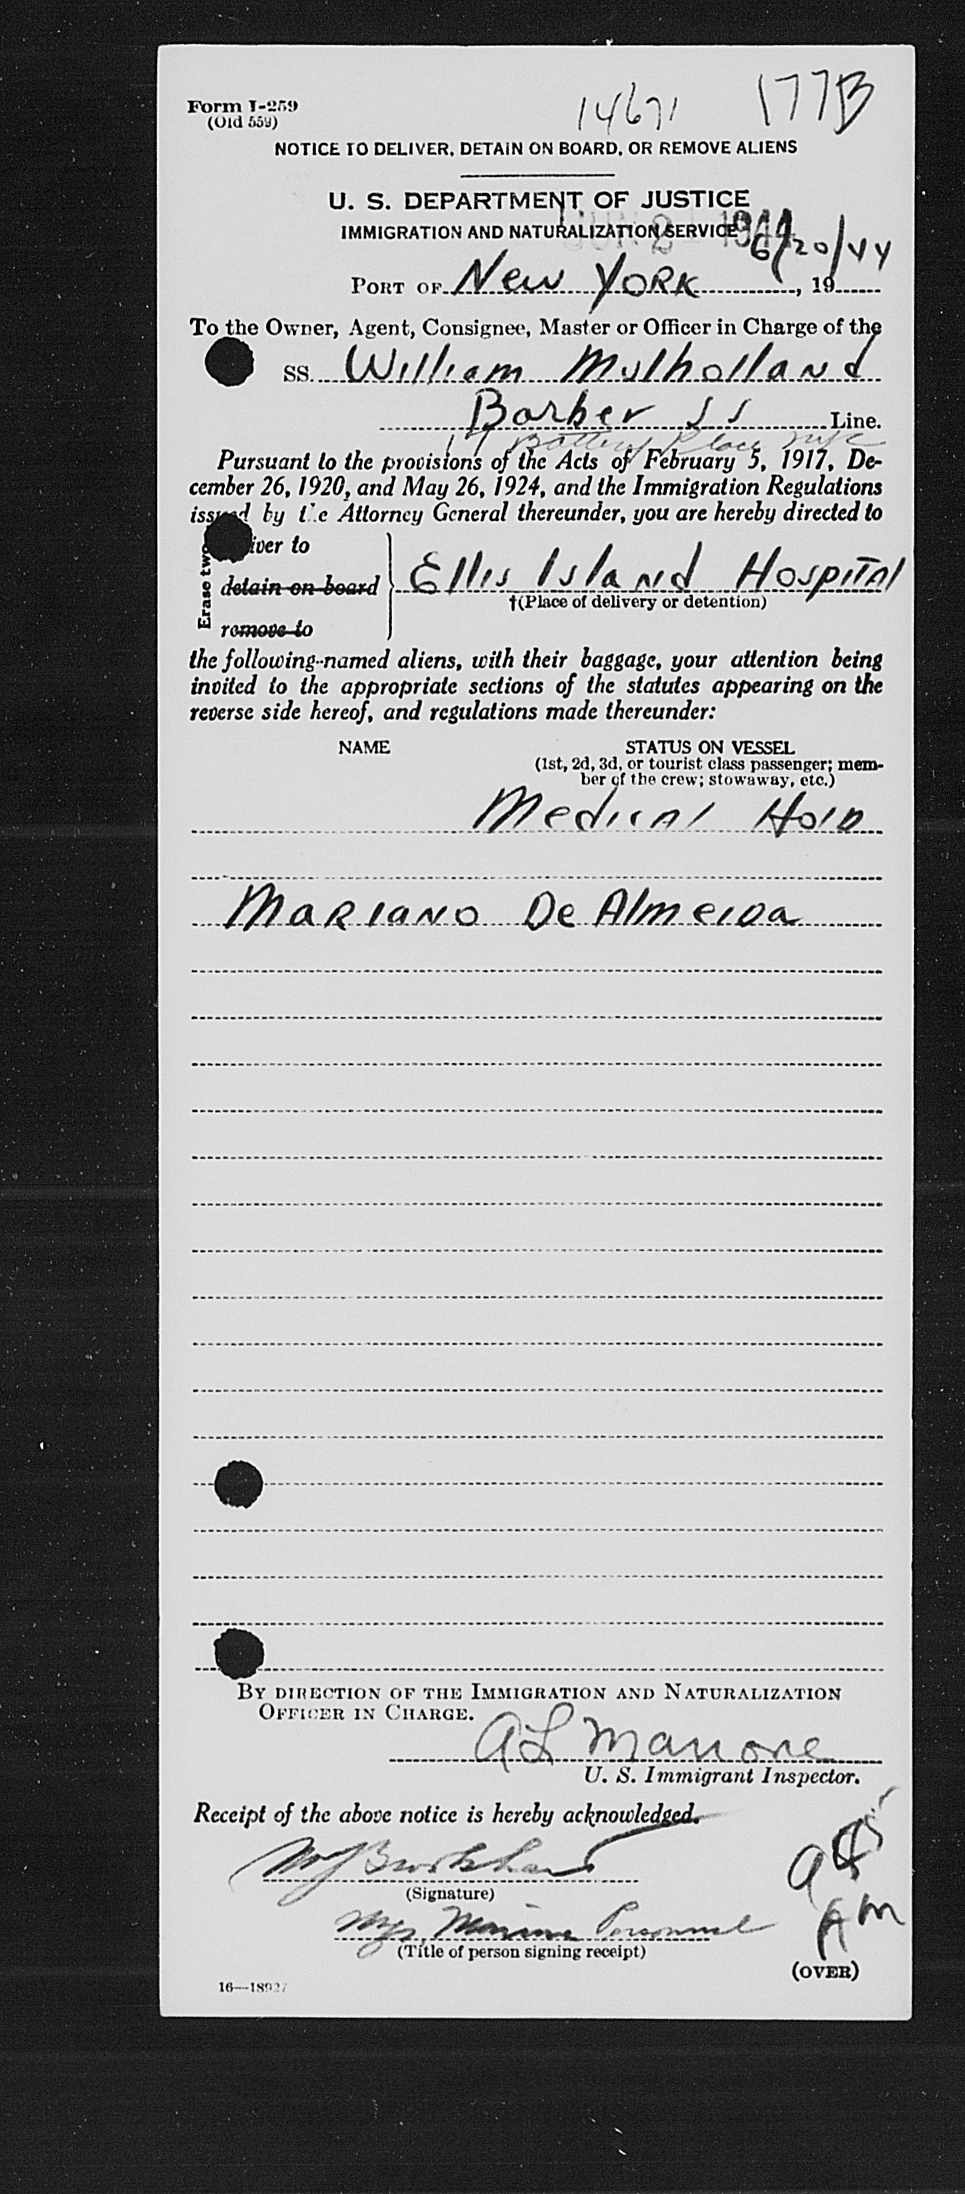 Form I-259
(Old 559)
14671
177B
NOTICE TO DELIVER, DETAIN ON BOARD, OR REMOVE ALIENS
U. S. DEPARTMENT OF JUSTICE
IMMIGRATION AND NATURALIZATION SERVICE
JUN 21 1944
6/20/44
PORT OF New York, 19
To the Owner, Agent, Consignee, Master or Officer in Charge of the
SS. William Mulholland
Barber SS Line.
17 Battery Place NYC
Pursuant to the provisions of the Acts of February 5, 1917, De-
cember 26, 1920, and May 26, 1924, and the Immigration Regulations
issued by the Attorney General thereunder, you are hereby directed to
Erase two
iver to
detain on board
remove to
Ellis Island Hospital
†(Place of delivery or detention)
the following-named aliens, with their baggage, your attention being
invited to the appropriate sections of the statutes appearing on the
reverse side hereof, and regulations made thereunder:
NAME
STATUS ON VESSEL
(1st, 2d, 3d, or tourist class passenger; mem-
ber of the crew; stowaway, etc.)
Medical Hold
Mariano De Almeida
BY DIRECTION OF THE IMMIGRATION AND NATURALIZATION
OFFICER IN CHARGE.
A L Manone
U. S. Immigrant Inspector.
Receipt of the above notice is hereby acknowledged.
(Signature)
Mgr. Marine Personnel
(Title of person signing receipt)
9
AM
(OVER)
16—18927